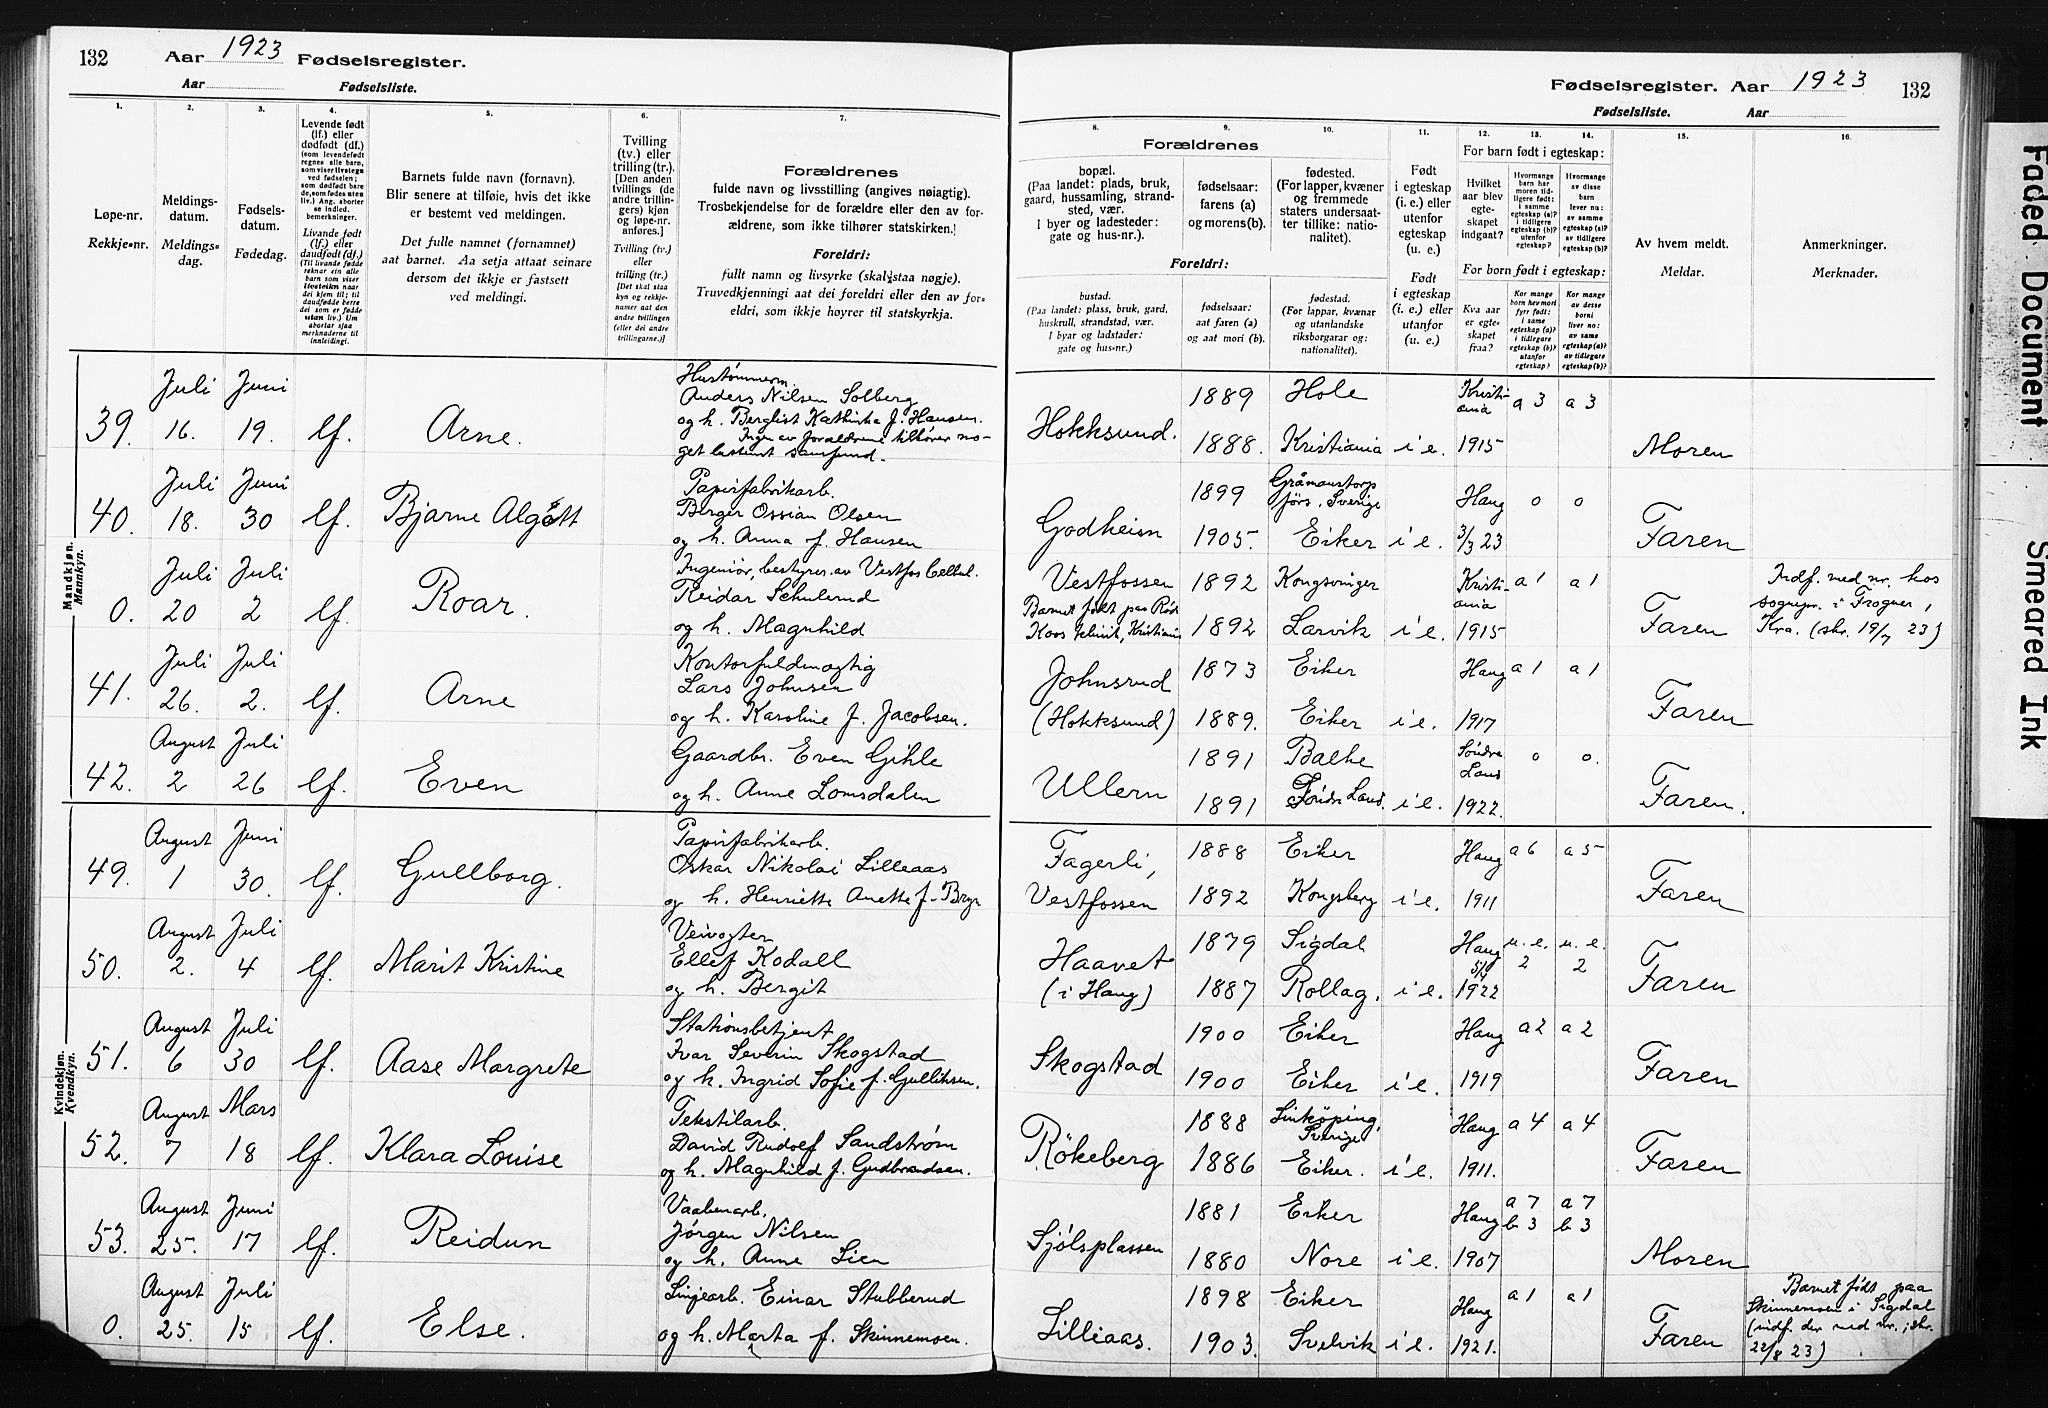 132 Aar 1923 Fødselsregister.
Aar Fødselsliste.
Fødselsregister. Aar 1923 132
Fødselsliste. Aar
1. 2. 3. 4. 5. 6. 7.
Løpe-nr.
Rekkje-nr.
Meldings-
datum.
Meldings-
dag.
Fødsels-
datum.
Fødedag.
Levende født
(lf.) eller
dødfødt (df.)
Livande fødd
(lf.) eller
daudfødt (df.)
Barnets fulde navn (fornavn).
Blir senere at tilføie, hvis det ikke
er bestemt ved meldingen.
Det fulle namnet (fornamnet)
aat barnet. Aa setja attaat seinare
dersom det ikkje er fastsett
ved meldingi.
Tvilling
(tv.) eller
trilling (tr.).
[Den anden
tvillings (de
andre trillin-
gers) kjøn
og løpe-nr.
anføres.]
Tvilling (tv.)
eller
trilling (tr.)
[Det skal staa
kyn og rekkje-
numer aat den
andre tvillingen
(eller dei andre
trillingarne.)]
Forældrenes
fulde navn og livsstilling (angives nøiagtig).
Trosbekjendelse for de forældre eller den av for-
ældrene, som ikke tilhører statskirken.
Foreldri:
fullt namn og livsyrke (skal staa nøgje).
Truvedkjenningi aat dei foreldri eller den av for-
eldri, som ikkje høyrer til statskyrkja.
8. 9. 10. 11. 12. 13. 14. 15. 16.
Forældrenes
bopæl.
(Paa landet: plads, bruk,
gaard, hussamling, strand-
sted, vær.
I byer og ladesteder:
gate og hus-nr.).
fødselsaar:
farens (a)
og morens (b).
fødested.
(For lapper, kvæner
og fremmede
staters undersaat-
ter tillike: natio-
nalitet).
Foreldri:
bustad.
(Paa landet: plass, bruk, gard,
huskrull, strandstad, vær.
I byar og ladstader:
gate og hus-nr.)
fødselsaar:
aat faren (a)
og aat mori (b).
fødestad.
(For lappar, kvænar
og utanlandske
riksborgarar og:
nationalitet).
Født
i egteskap
(i. e.) eller
utenfor
egteskap
(u. e.)
Født
i egteskap
(i. e.) eller
utanfor
(u. e.)
For barn født i egteskap:
Hvilket
aar blev
egte-
skapet
indgaat?
Hvormange
barn har
moren tid-
ligere født:
i samme
egteskap (a)?
i tidligere
egteskap (b)?
utenfor
egteskap?
Hvormange
av disse
barn
lever nu:
av samme
egteskap (a)?
av tidligere
egteskap (b)?
For born født i egteskap:
Kva aar
er egte-
skapet
fraa?
Kor mange
born hev mori
fyrr født:
i same
egteskap (a)?
i tidlegare
egteskap (b)?
utanfor
egteskap?
Kor mange
av desse
borni
liver no:
av same
egteskap (a)?
av tidlegare
egteskap (b)?
Av hvem meldt.
Meldar.
Anmerkninger.
Merknader.
Mandkjøn.
Mannkyn.
39. Juli 16. Juni 19. lf. Arne.
Hustømmerm.
Anders Nilsen Solberg
og h. Bergliot Kathinka f. Hansen.
Ingen av forældrene tilhører no-
get bestemt samfund.
Hokksund. 1889 Hole Kristi-
ania a 3 a 3
1888. Kristiania i e. 1915 Moren
40. Juli 18. Juni 30 lf. Bjarne Algott
Papirfabrikarb.
Birger Ossian Olsen
og h. Anna f. Hansen
Godheim 1899 Gråmanstorp
förs. Sverige Haug o o
1905. Eiker i e. 3/3 23 Faren
0. Juli 20 Juli 2 lf. Roar.
Ingeniör, bestyrer av Vestfos Cellul.
Reidar Schulerud
og h. Magnhild
Vestfossen 1892 Kongsvinger Kristi-
ania a 1 a 1
Barnet født paa Röde
Kors klinik, Kristiania 1892 Larvik i e. 1915 Faren
Indf. med nr. hos
sognepr. i Frogner,
Kra. (skr. 19/7 23)
41. Juli 26. Juli 2. lf. Arne
Kontorfuldmægtig
Lars Johnsen
og h. Karoline f. Jacobsen.
Johnsrud
(Hokksund) 1873 Eiker Haug a 1 a 1
1889. Eiker i e. 1917 Faren
42. August 2 Juli 26 lf. Even
Gaardbr. Even Gihle
og h. Anne Lomsdalen
Ullern 1891 Balke Söndre
Land o o.
1891 Söndr Land. i e. 1922. Faren.
Kvindekjøn.
Kvendkyn.
49. August 1 Juni 30. lf. Gullborg.
Papirfabrikarb.
Oskar Nikolai Lilleaas
og h. Henriette Anette f. Bryn
Fagerli,
Vestfossen 1888 Eiker Haug a 6 a 5
1892 Kongsberg i e. 1911 Faren
50. August 2. Juli 4 lf. Marit Kristine
Veivogter
Ellef Kodall
og h. Bergit
Haavet
(i Haug) 1879 Sigdal Haug u. e. 2 u. e. 2
1887 Rollag. i e. 5/4 1922 Faren
51. August 6 Juli 30 lf. Aase Margrete
Stationsbetjent
Ivar Severin Skogstad
og h. Ingrid Sofie f. Gulliksen.
Skogstad 1900 Eiker Haug a 2 a 2
1900 Eiker i e. 1919 Faren
52. August 7 Mars 18 lf. Klara Louise
Tekstilarb.
David Rudolf Sandstrøm
og h. Magnhild f. Gudbrandsen.
Rökeberg 1888 Linköping,
Sverige Haug a 4 a 4
1886 Eiker. i e. 1911. Faren
53. August 25. Juni 17 lf. Reidun
Vaabenarb.
Jørgen Nilsen
og h. Anne Lien
Sjølsplassen 1881 Eiker Haug a 7 b 3 a 7 b 3
1880 Nore i e. 1907 Moren
0. August 25. Juli 15 lf. Else.
Linjearb. Einar Stubberud
og h. Marta f. Skinnemoen.
Lilliaas. 1898 Eiker Haug a 1 a 1
1903. Svelvik i e. 1921. Faren
Barnet født paa
Skinnemoen i Sigdal
(indf. der med nr.; skr.
22/8 23)
Faded Document
Smeared Ink